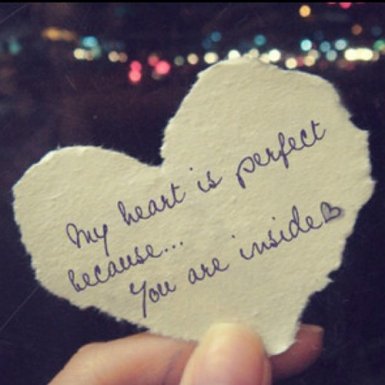 My heart is perfect
because...
You are inside